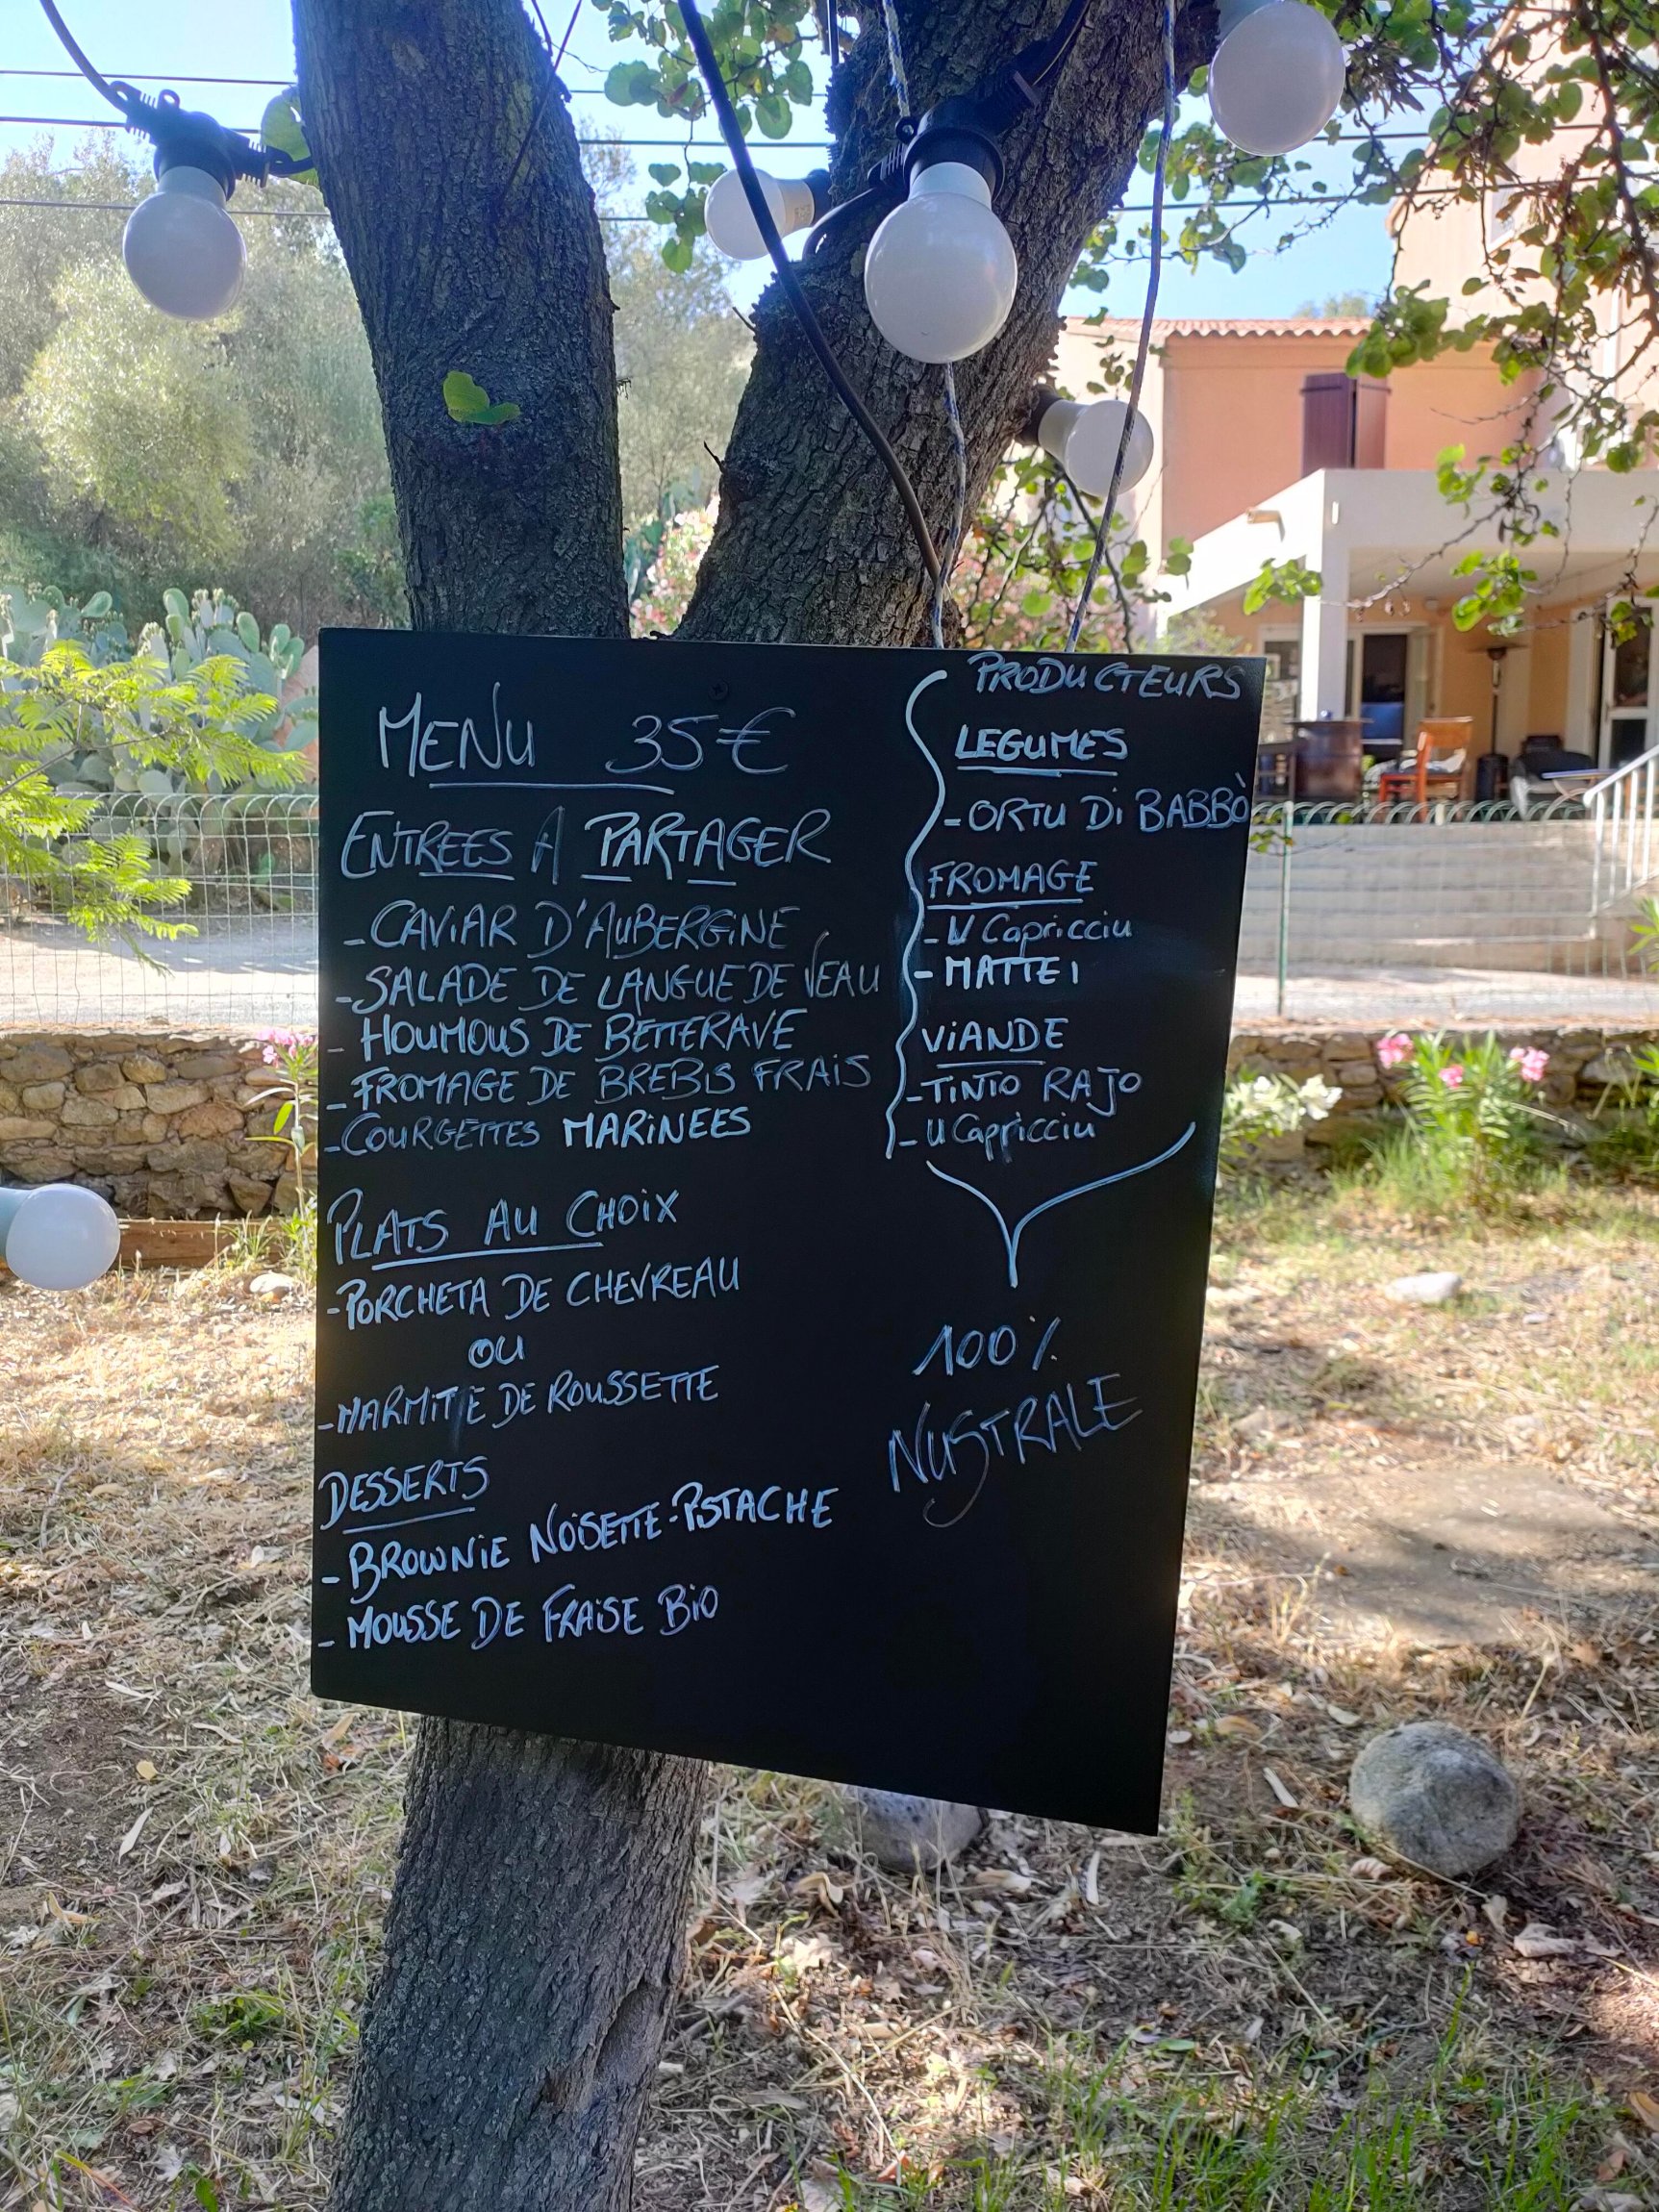 MENU 35€
ENTREES A PARTAGER
- CAVIAR D'AUBERGINE
- SALADE DE LANGUE DE VEAU
- HOUMOUS DE BETTERAVE
- FROMAGE DE BREBIS FRAIS
- COURGETTES MARINEES
PLATS AU CHOIX
- PORCHETA DE CHEVREAU
OU
- MARMITE DE ROUSSETTE
DESSERTS
- BROWNIE NOISETTE-PISTACHE
- MOUSSE DE FRAISE BIO
PRODUCTEURS
LEGUMES
- ORTU DI BABBÒ
FROMAGE
- U Capricciu
- MATTEI
VIANDE
- TINTO RAJO
- U Capricciu
100%
NUSTRALE